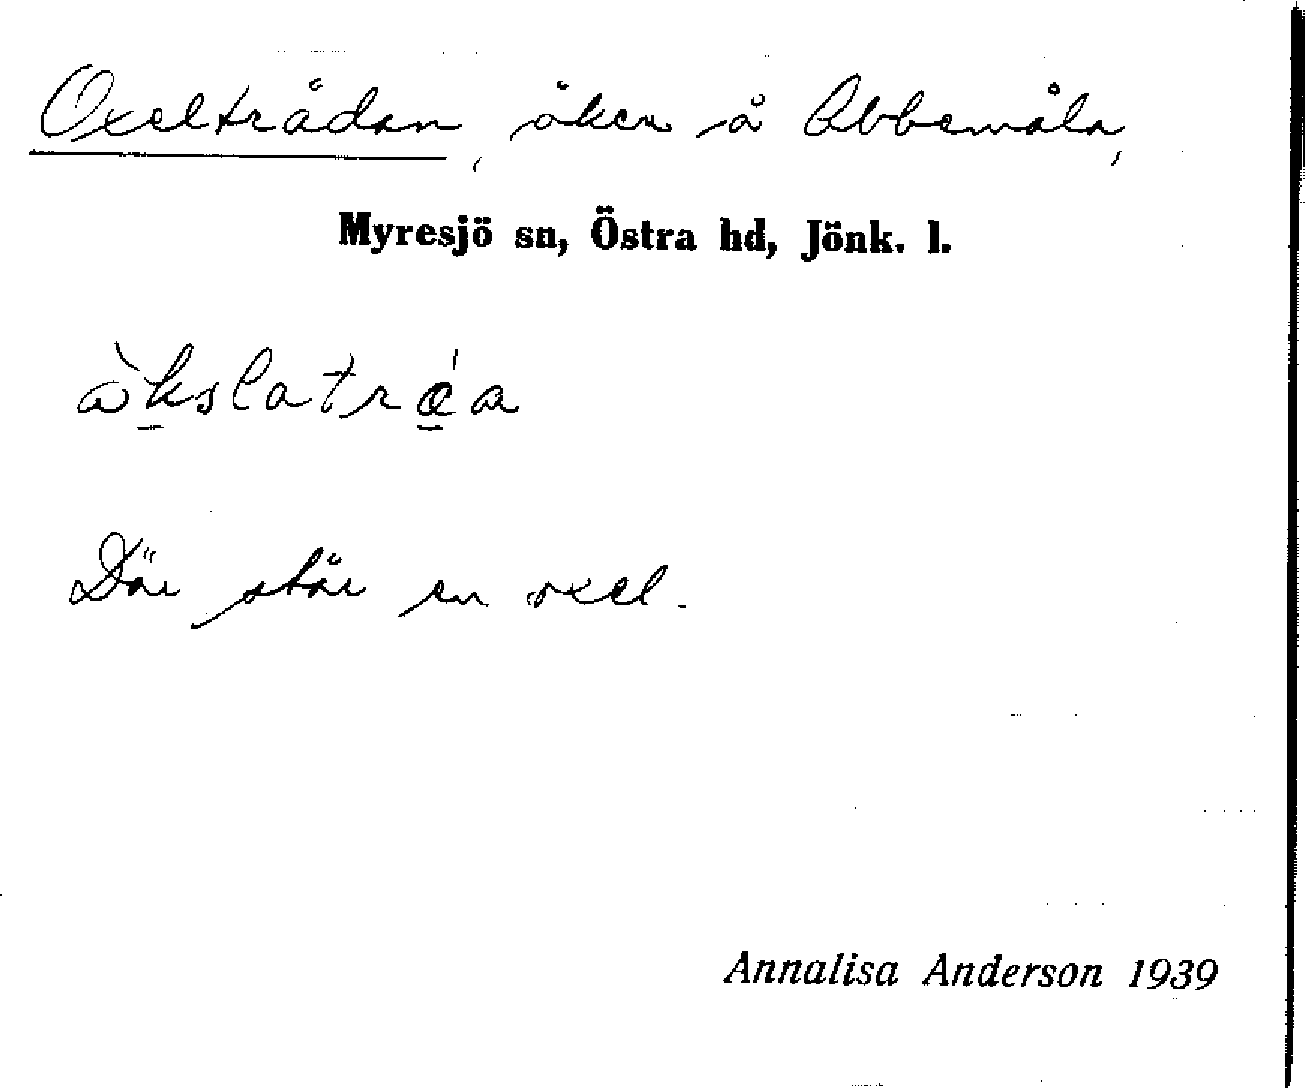 Oxelträdan, åker å Abbemåla,
Myresjö sn, Östra hd, Jönk. l.
Där står en oxel.
Annalisa Anderson 1939